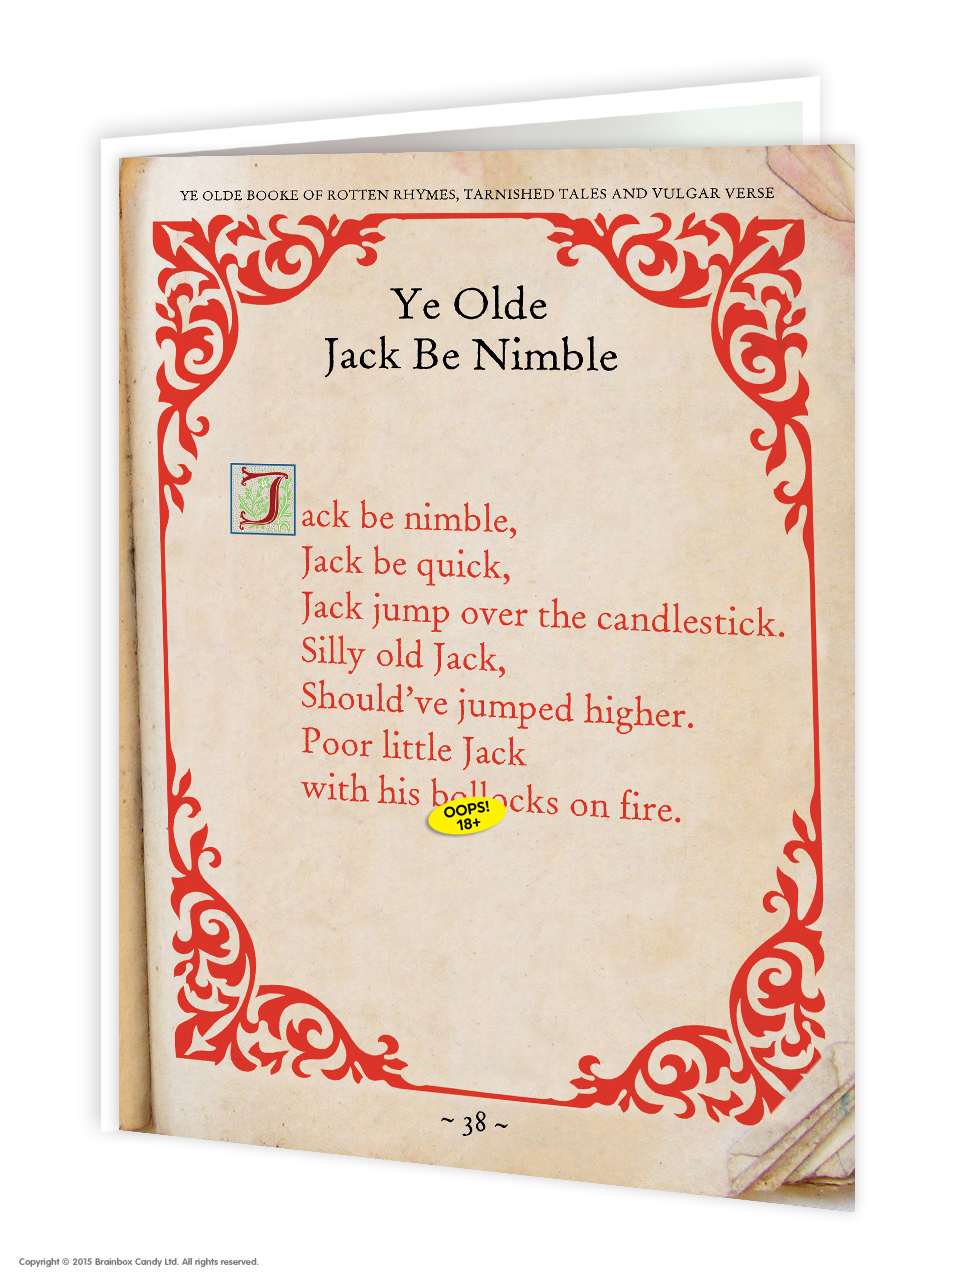 YE OLDE BOOKE OF ROTTEN RHYMES, TARNISHED TALES AND VULGAR VERSE
Ye Olde
Jack Be Nimble
Jack be nimble,
Jack be quick,
Jack jump over the candlestick.
Silly old Jack,
Should've jumped higher.
Poor little Jack
with his bollocks on fire.
OOPS!
18+
~ 38 ~
Copyright © 2015 Brainbox Candy Ltd. All rights reserved.